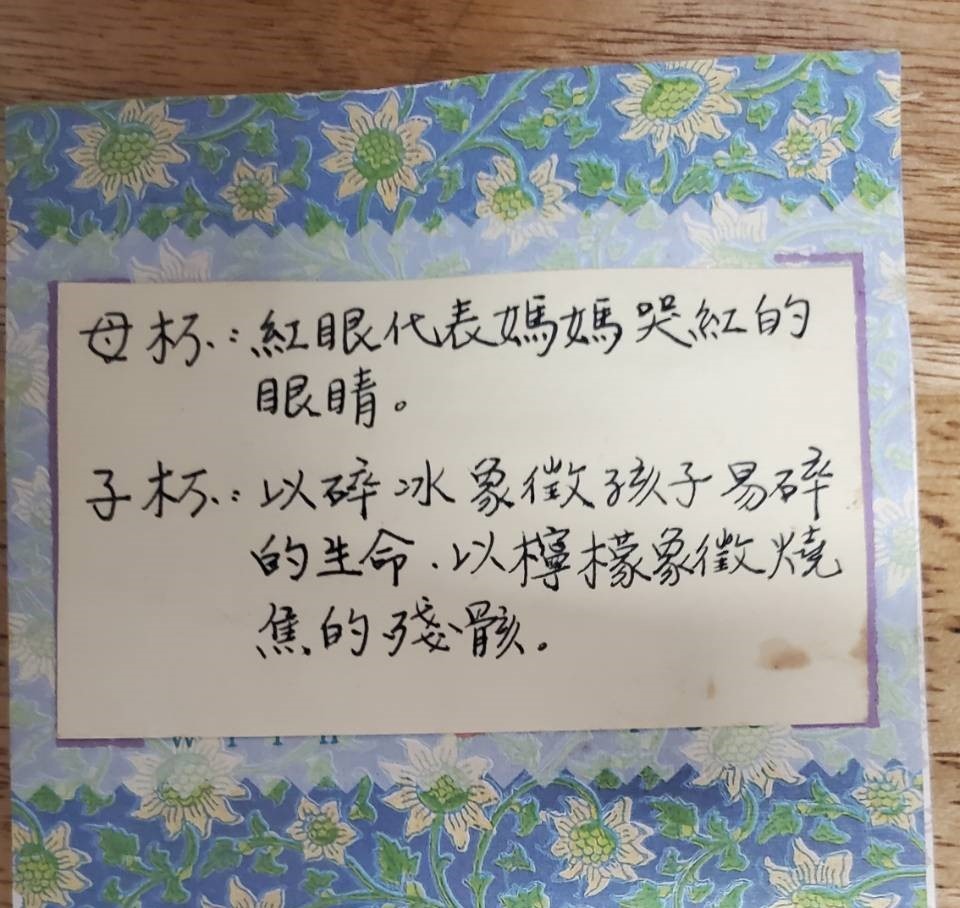 母杯:紅眼代表媽媽哭紅的
眼睛。
子杯:以碎冰象徵孩子易碎
的生命、以檸檬象徵燒
焦的殘骸。
WITH